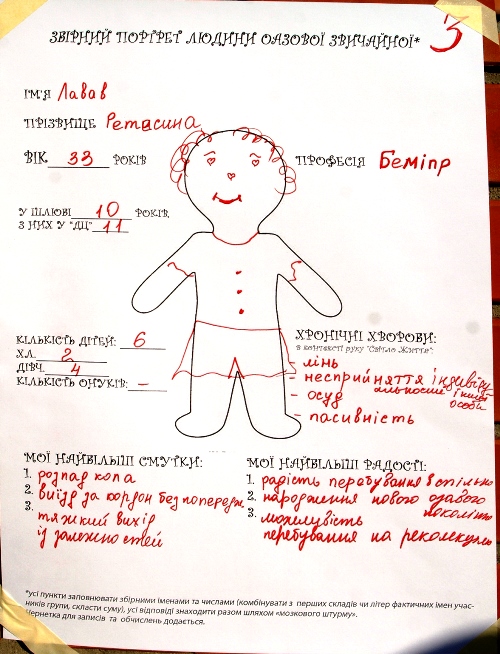 ЗБІРНИЙ ПОРТРЕТ ЛЮДИНИ ОАЗОВОЇ ЗВИЧАЙНОЇ*
3
ІМ'Я Лавав
ПРІЗВИЩЕ Ретасина
ВІК 33 РОКІВ
ПРОФЕСІЯ Беміпр
У ШЛЮБІ 10 РОКІВ,
З НИХ У "ДЦ" 11
КІЛЬКІСТЬ ДІТЕЙ: 6
ХЛ. 2
ДІВЧ. 4
КІЛЬКІСТЬ ОНУКІВ: -
ХРОНІЧНІ ХВОРОБИ:
в контексті руху "Світло Життя":
- лінь
- несприйняття індивіду
альності іншої
особи
- осуд
- пасивність
МОЇ НАЙБІЛЬШІ СМУТКИ:
1. розпад кола
2. виїзд за кордон без попередж.
3. тяжкий вихід
із залежностей
МОЇ НАЙБІЛЬШІ РАДОСТІ:
1. радість перебування в спільно
2. народження нового оазового
покоління
3. можливість
перебування на реколекціях
*усі пункти заповнювати збірними іменами та числами (комбінувати з перших складів чи літер фактичних імен учас-
ників групи, скласти суму), усі відповіді знаходити разом шляхом «мозкового штурму».
Чернетка для записів та обчислень додається.